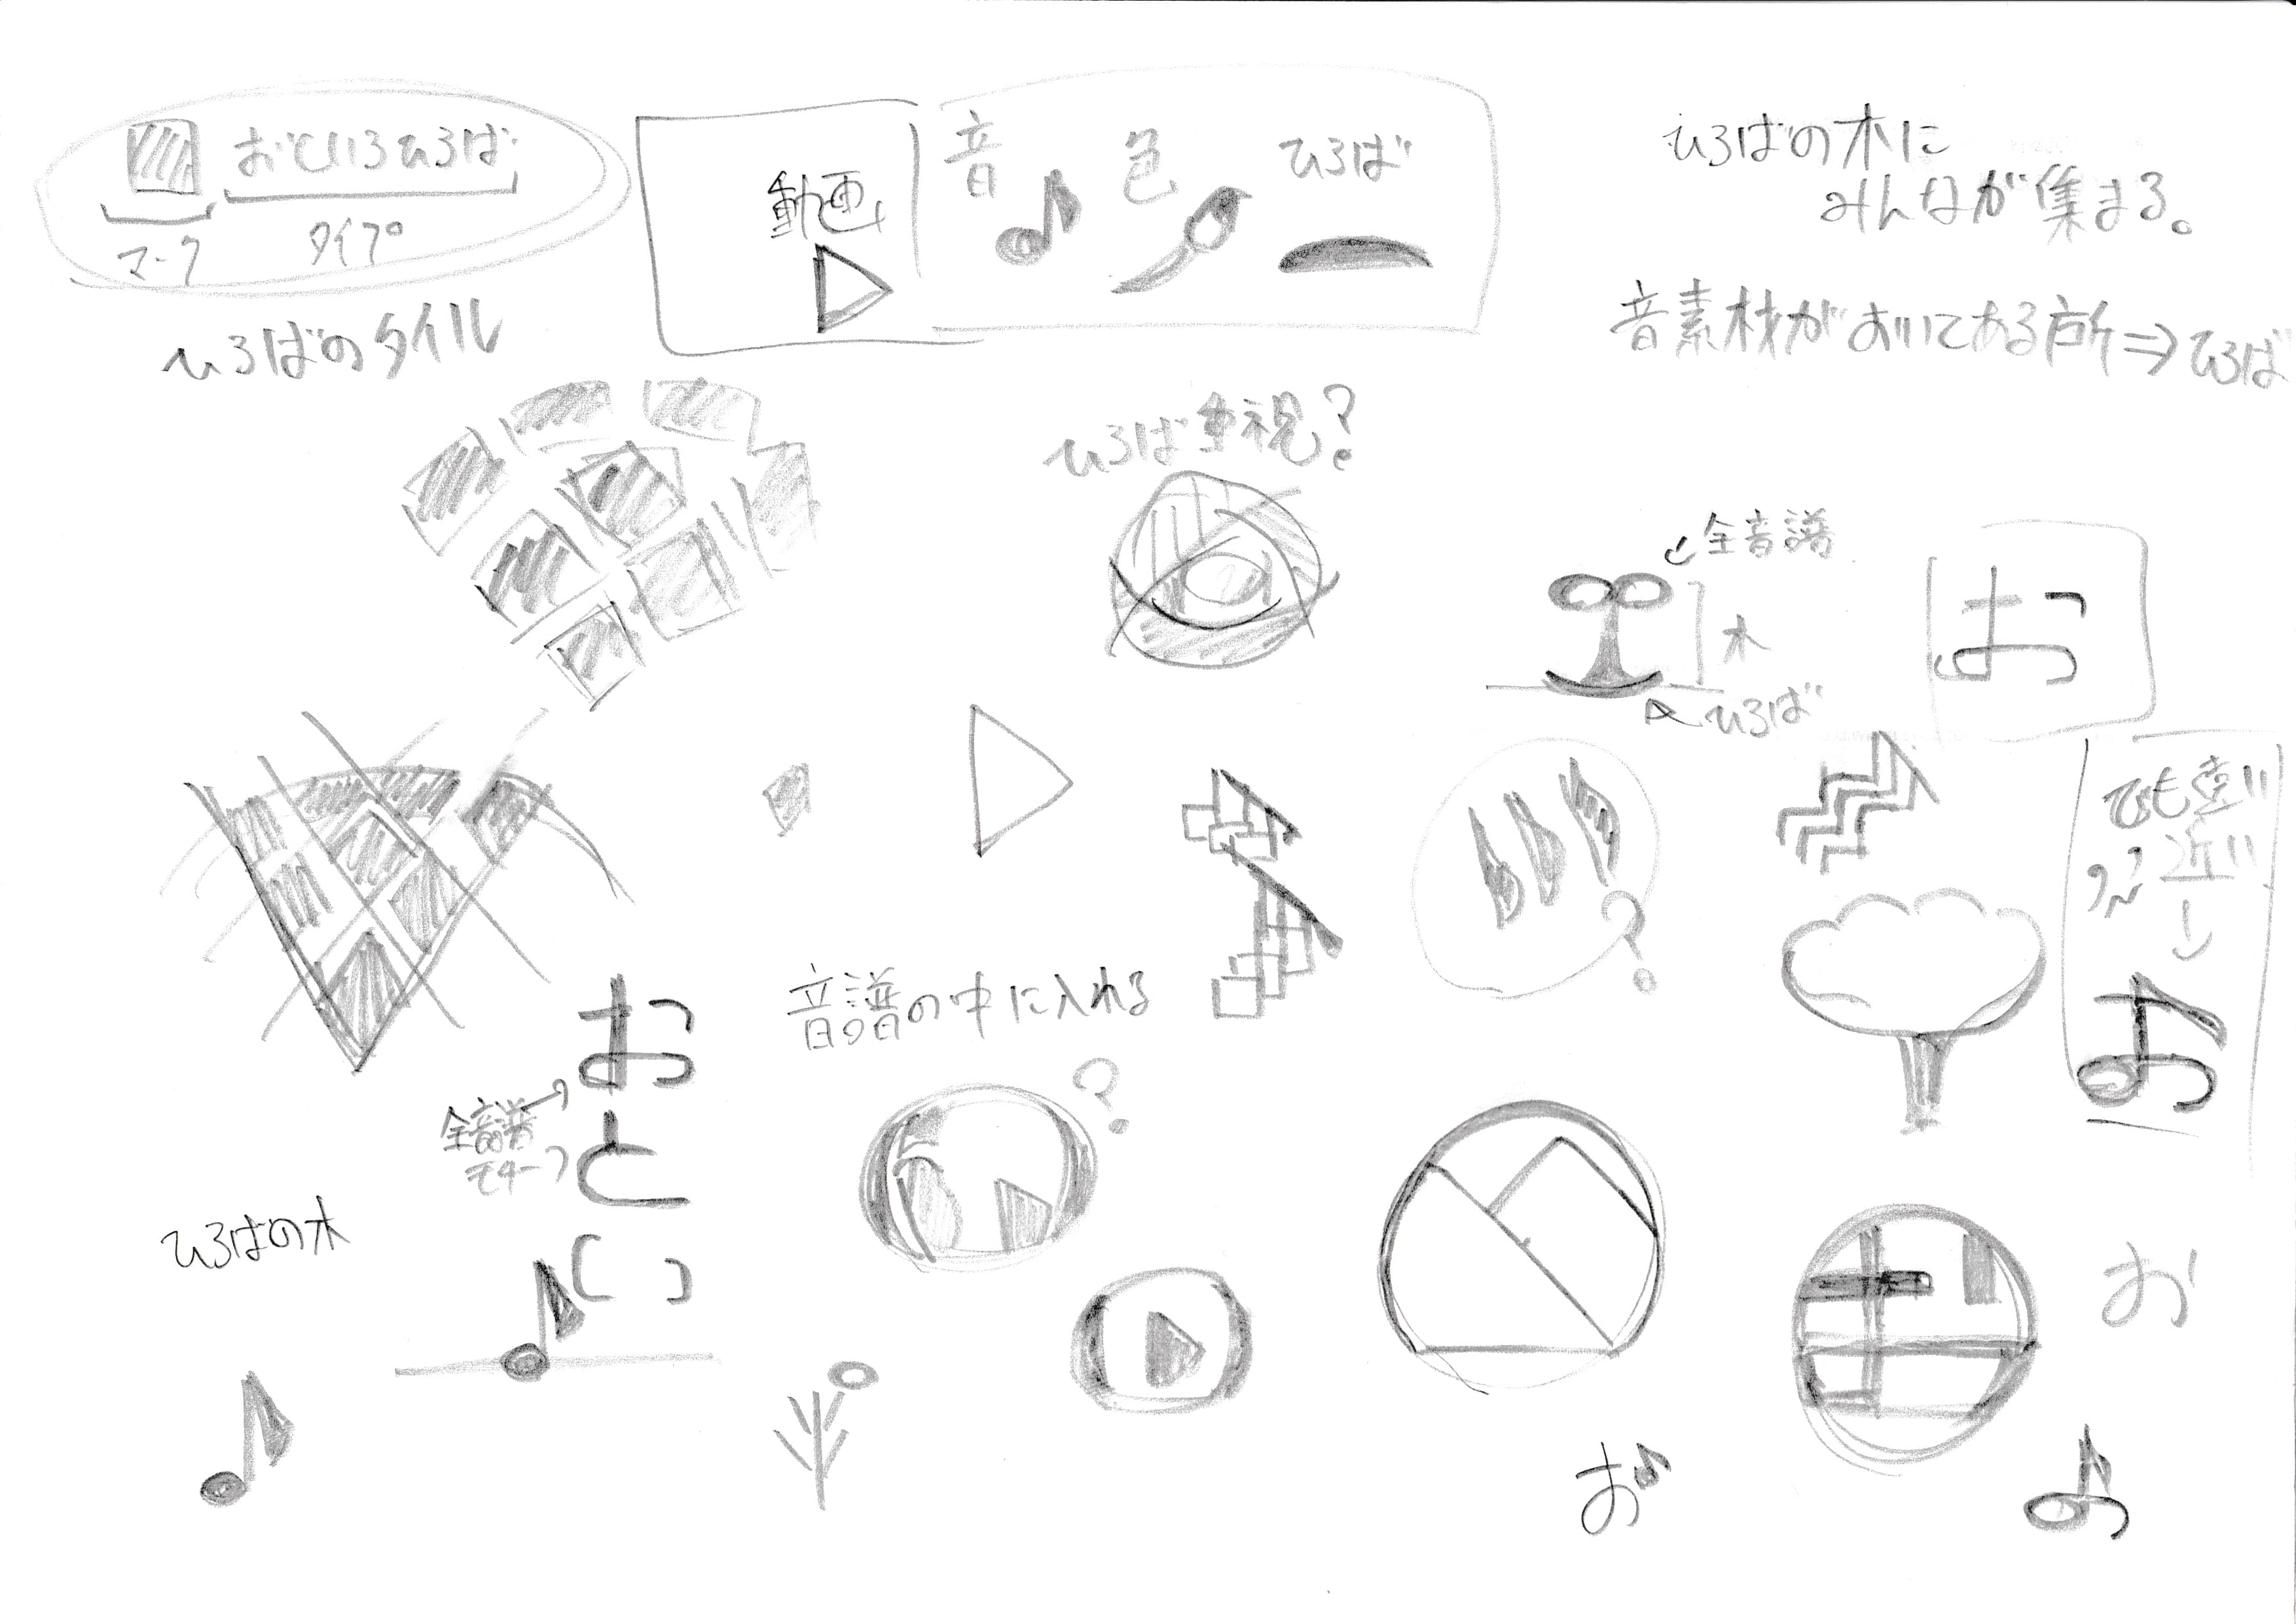 おといろひろば
マーク
タイプ
動画
音
色
ひろば
ひろばの木に
みんなが集まる。
音素材がおいてある所⇒ひろば
ひろばのタイル
ひろば重視?
全音譜
木
ひろば
お
でも
近い
お
音譜の中に入れる
?
?
お
と
い
全音譜
モチーフ
ひろばの木
お
お
お